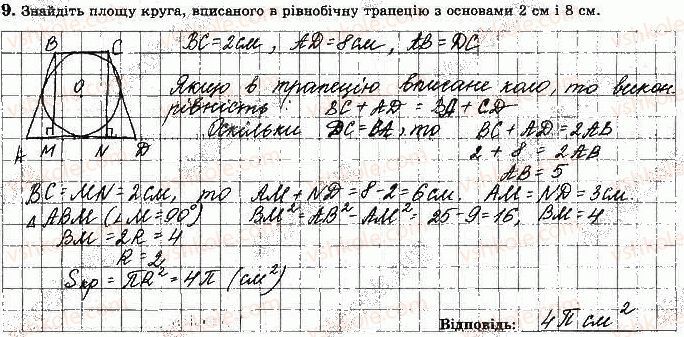 9. Знайдіть площу круга, вписаного в рівнобічну трапецію з основами 2 см і 8 см.
BC = 2см, AD = 8см, AB = DC
Якщо в трапецію вписане коло, то викон.
рівність: BC + AD = BA + CD
Оскільки DC = BA, то BC + AD = 2AB
2 + 8 = 2AB
AB = 5
B C
O
A M N D
BC = MN = 2см, то AM + ND = 8 - 2 = 6см. AM = ND = 3см.
△ABM (∠M = 90°) BM² = AB² - AM² = 25 - 9 = 16, BM = 4
BM = 2R = 4
R = 2
Sкр = πR² = 4π (см²)
Відповідь: 4π см²